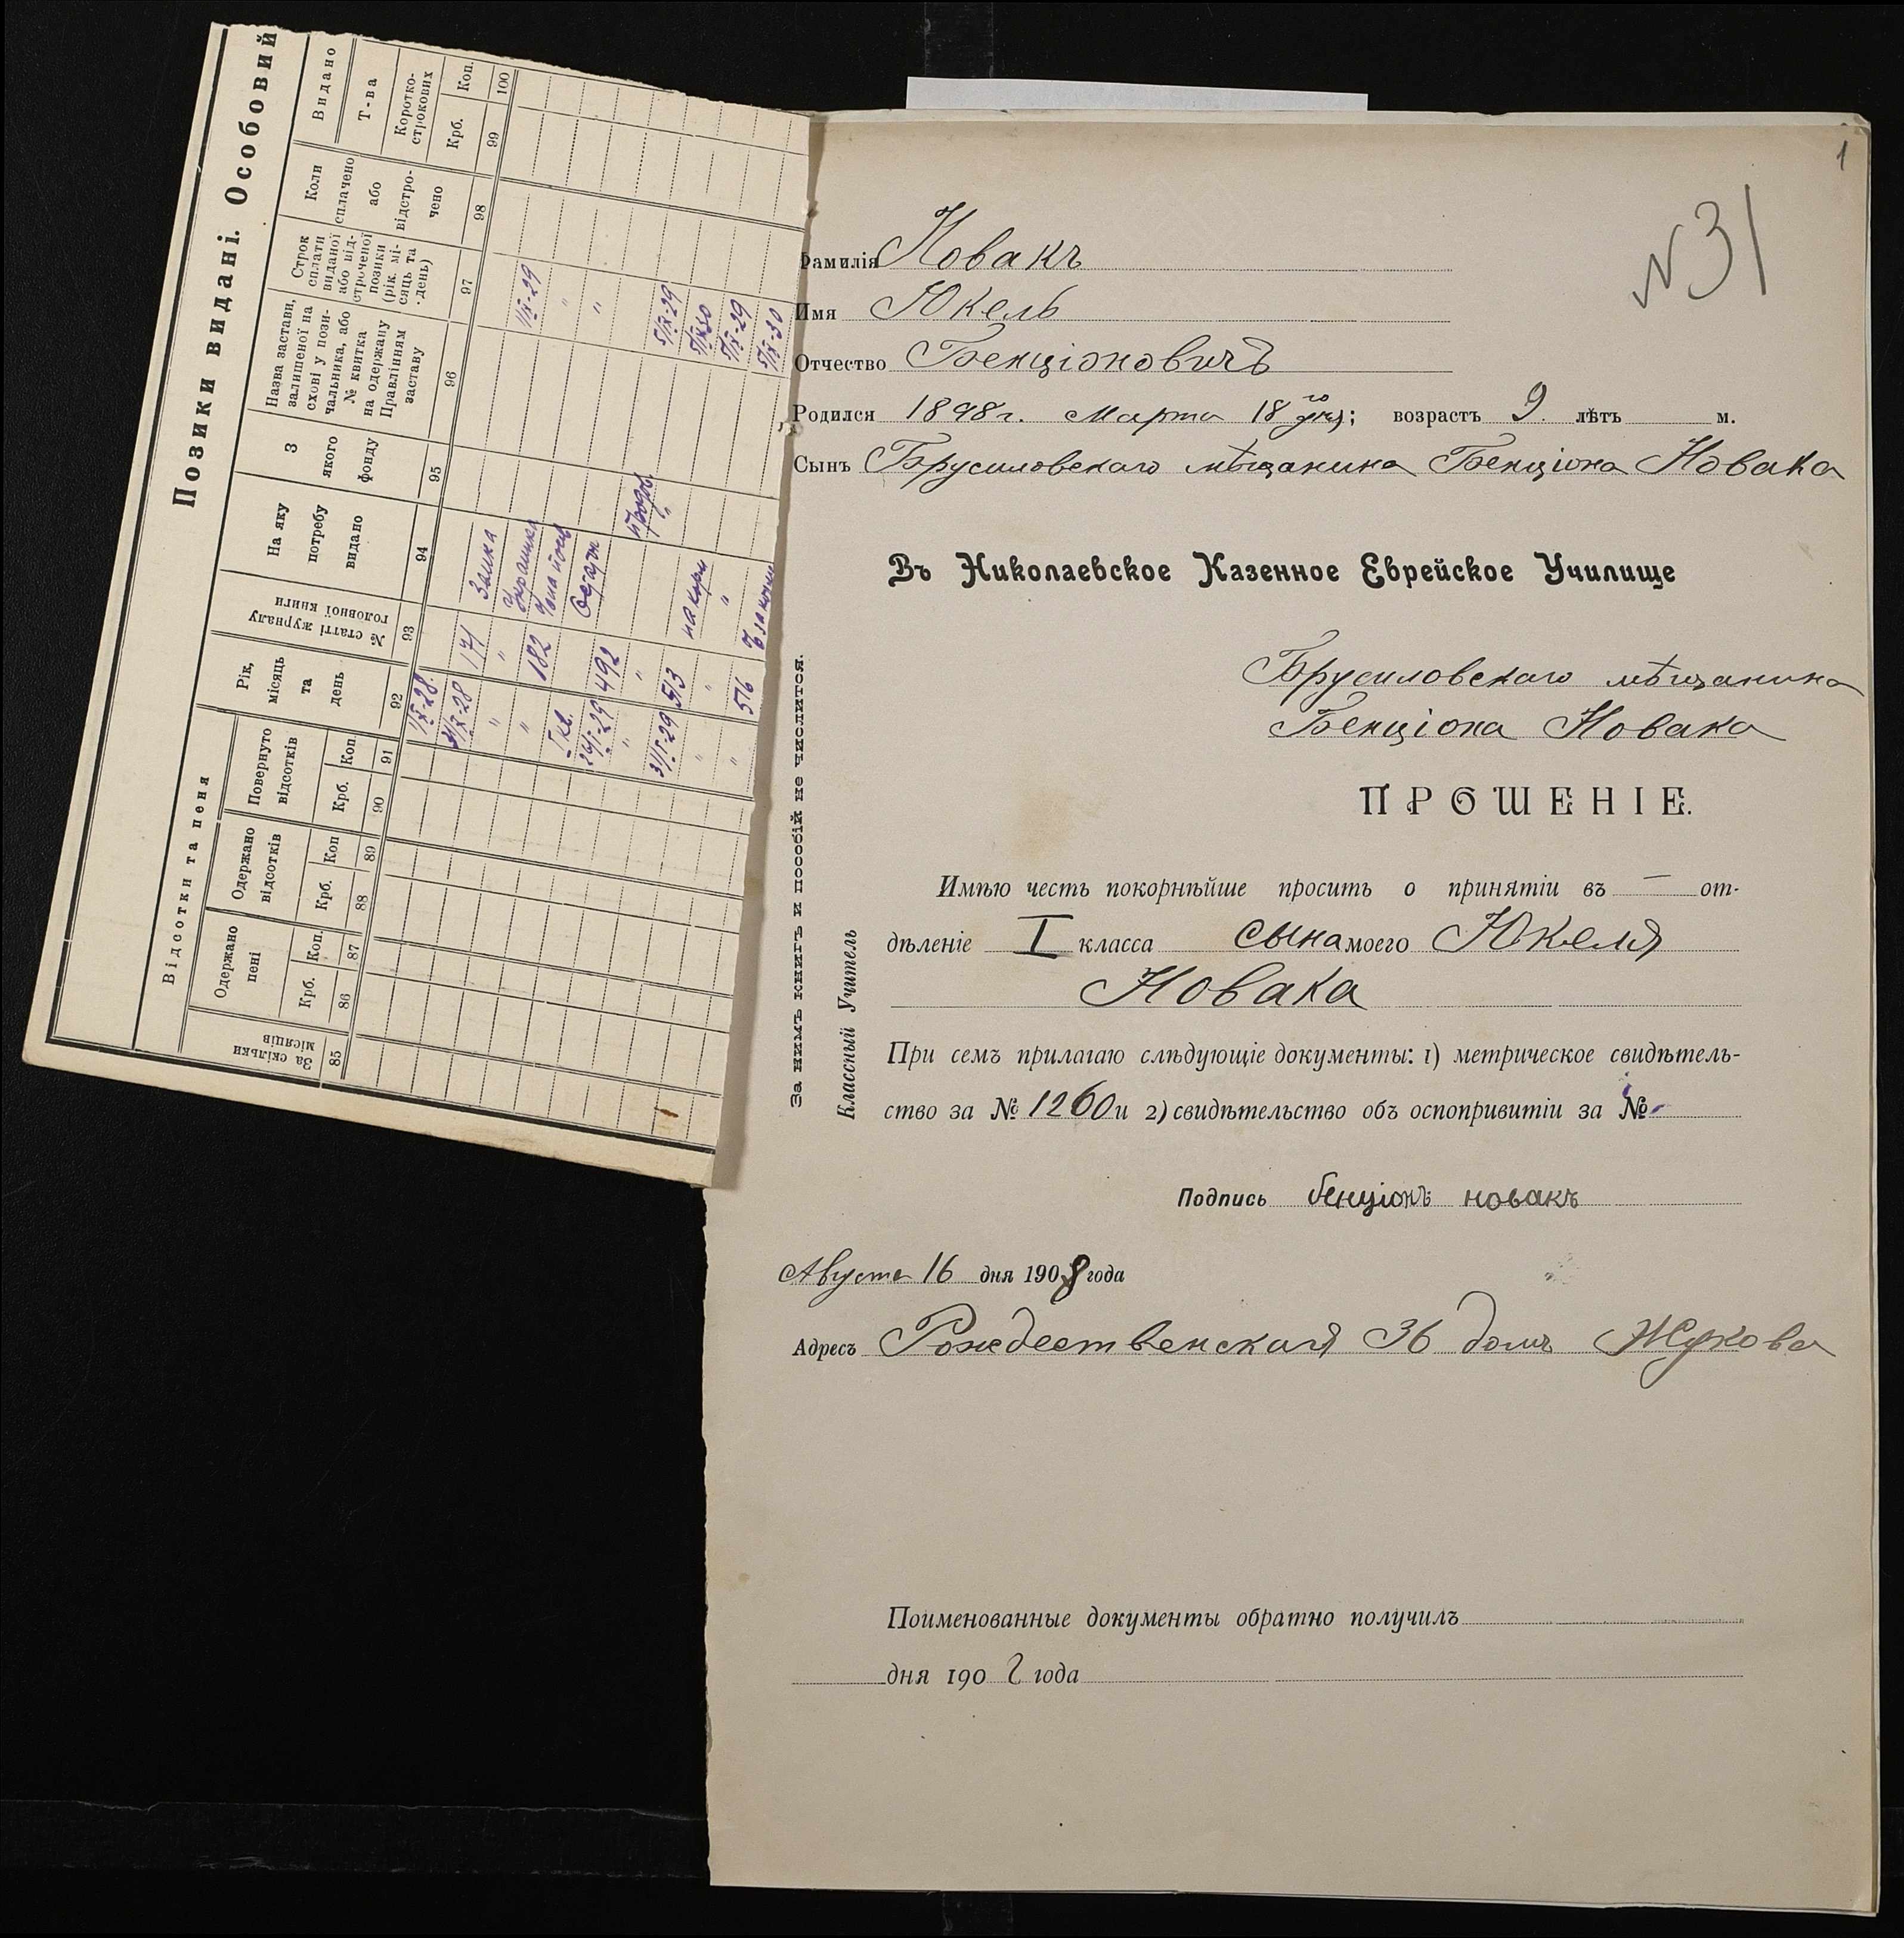 Позики видані. Особовий
Відсотки та пеня
За скільки місяців
Одержано пені
Крб.
Коп.
Одержано відсотків
Крб.
Коп
Повернуто відсотків
Крб.
Коп.
Рік, місяць та день
№ статті журналу головної книги
На яку потребу видано
З якого фонду
Назва застави, залишеної на схові у пози-чальника, або № квитка на одержану Правлінням заставу
Строк сплати виданої або від-строченої позики (рік, мі-сяць та день)
Коли сплачено або відстро-чено
Видано
Т-ва
Коротко-строкових
Крб.
Коп.
85 86 87 88 89 90 91 92 93 94 95 96 97 98 99 100
1/X-28.
31/X-28 171
" "
" 182
I кв.
26/I-29 492
" "
31/I-29 513
" "
" 516
1/IX-29
"
"
5/IX-29
5/IX 30
5/IX-29
5/IX-30
1
№31
Фамилія Новакъ
Имя Юкель
Отчество Бенціоновичъ
Родился 1898 г. Марта 18го дня; возрастъ 9. лѣтъ м.
Сынъ Брусиловскаго мѣщанина Бенціона Новака
Въ Николаевское Казенное Еврейское Училище
Брусиловскаго мѣщанина
Бенціона Новака
ПРОШЕНІЕ.
Имѣю честь покорнѣйше просить о принятіи въ — от-
дѣленіе I класса сына моего Юкеля
Новака
При семъ прилагаю слѣдующіе документы: 1) метрическое свидѣтель-
ство за № 1260 и 2) свидѣтельство объ оспопривитіи за №
Подпись бенціонъ новакъ
Августа 16 дня 1908 года
Адресъ Рождественская 36 домъ Жукова
Поименованные документы обратно получилъ
дня 190 года
За нимъ книгъ и пособій не числится.
Классный Учитель